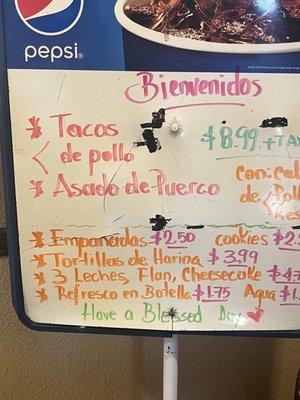 pepsi
Bienvenidos
* Tacos de pollo
$8.99 + TAX
* Asado de Puerco
con:
de
* Empanadas $2.50 cookies
* Tortillas de Harina $3.99
* 3 Leches, Flan, Cheesecake
* Refresco en Botella $1.75 Agua
Have a Blessed Day